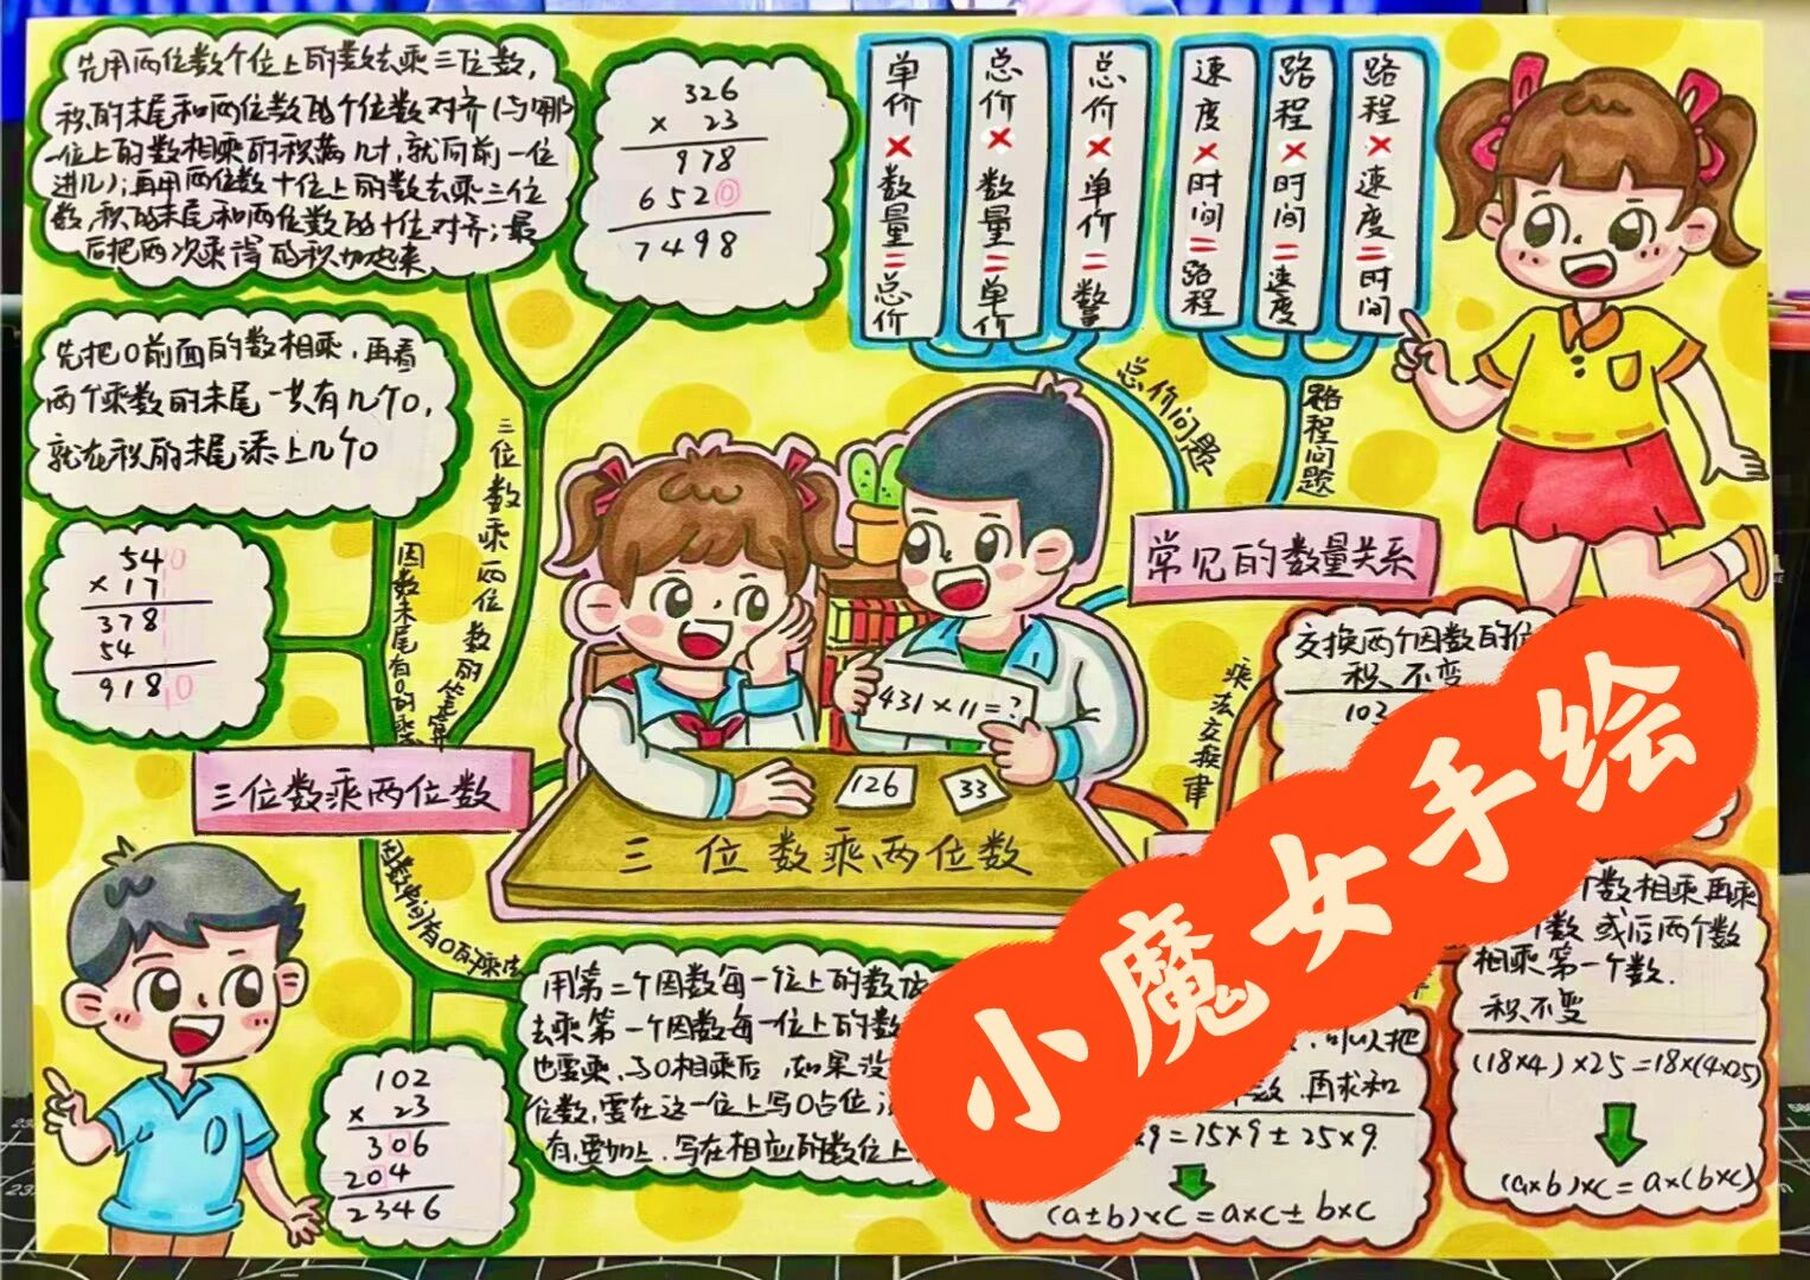 先用两位数个位上的数去乘三位数,
积的末尾和两位数的个位数对齐(与哪
一位上的数相乘的积满几十,就向前一位
进几);再用两位数十位上的数去乘三位
数,积的末尾和两位数的十位对齐;最
后把两次乘得的积加起来
326
× 23
978
6520
7498
三位数乘两位数的笔算
先把0前面的数相乘,再看
两个乘数的末尾一共有几个0,
就在积的末尾添上几个0
540
× 17
378
54
9180
因数末尾有0的乘
三位数乘两位数
因数中间有0的乘法
102
× 23
306
204
2346
用第二个因数每一位上的数
去乘第一个因数每一位上的数
也要乘,与0相乘后,如果没
位数,要在这一位上写0占位;
有,要加上,写在相应的数位上
431×11=?
126
33
三位数乘两位数
单价×数量=总价
总价×数量=单价
总价×单价=数量
总价问题
速度×时间=路程
路程×时间=速度
路程×速度=时间
路程问题
常见的数量关系
乘法交换律
交换两个因数的位
积不变
102
个数相乘再乘
个数 或后两个数
相乘第一个数.
积不变
(18×4)×25=18×(4×25)
(a×b)×c=a×(b×c)
可以把
数,再求和
×9=75×9±25×9
(a±b)×c=a×c±b×c
小魔女手绘